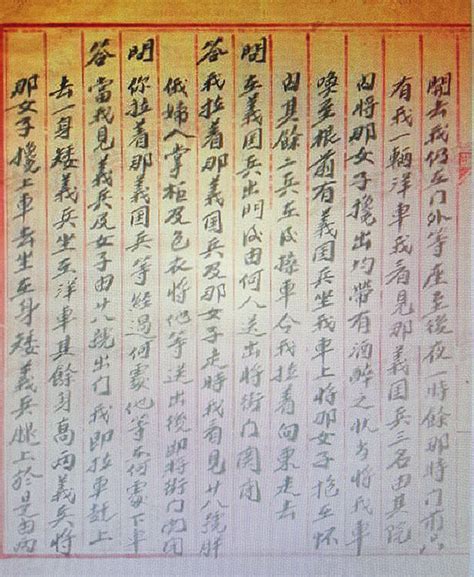 開去我仍在門外等座至後夜一時餘那時門前
有我一輛洋車我看見那義国兵三名由其院
内將那女子攙出均帶有酒醉之狀当將我車
喚至根前有義国兵坐我車上將那女子抱在怀
由其餘二兵在後車令我拉着向東走去
問在義国兵出門後由何人送出將街门関閉
答我拉着那義国兵及那女子走時我看見廿八號胖
俄婦人掌柜及色衣將他等送出後即將街門関閉
問你拉着那義国兵等經過何處他等在何處下車
答當我見義兵及女子由廿八號出门我即拉車赶上
去一身矮義兵坐在洋車其餘身高兩義兵將
那女子攙上車去坐在身矮義兵腿上於是由兩